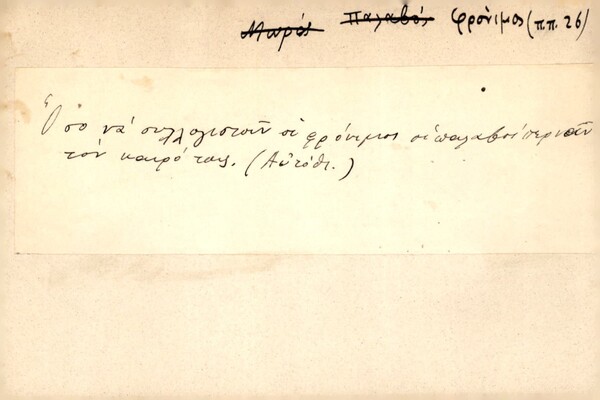 Μωρός Παλαβός φρόνιμος (ππ. 26)
Ὅσο νά συλλογιστοῦν οἱ φρόνιμοι οἱ παλαβοί περνοῦν
τόν καιρό τους. (Αὐτόθι.)